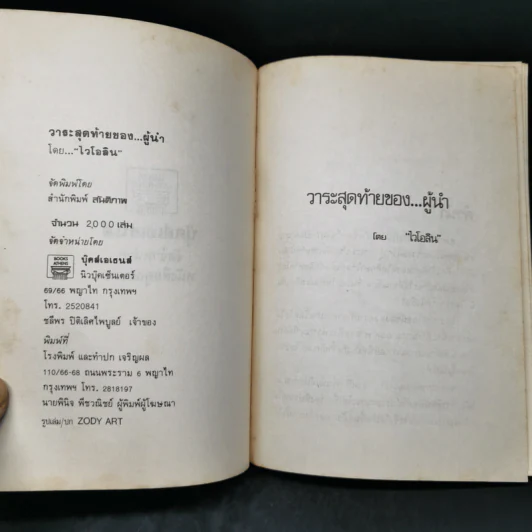 วาระสุดท้ายของ...ผู้นำ
โดย..."ไวโอลิน"
จัดพิมพ์โดย
สำนักพิมพ์ สันติภาพ
จำนวน 2,000 เล่ม
จัดจำหน่ายโดย
BOOKS
ATHENS
บุ๊คส์เอเธนส์
นิวบุ๊คเซ็นเตอร์
69/66 พญาไท กรุงเทพฯ
โทร. 2520841
ชลีพร ปิติเลิศไพบูลย์ เจ้าของ
พิมพ์ที่
โรงพิมพ์ และทำปก เจริญผล
110/66-68 ถนนพระราม 6 พญาไท
กรุงเทพฯ โทร. 2818197
นายพินิจ พืชวณิชย์ ผู้พิมพ์ผู้โฆษณา
รูปเล่ม/ปก ZODY ART
วาระสุดท้ายของ...ผู้นำ
โดย "ไวโอลิน"